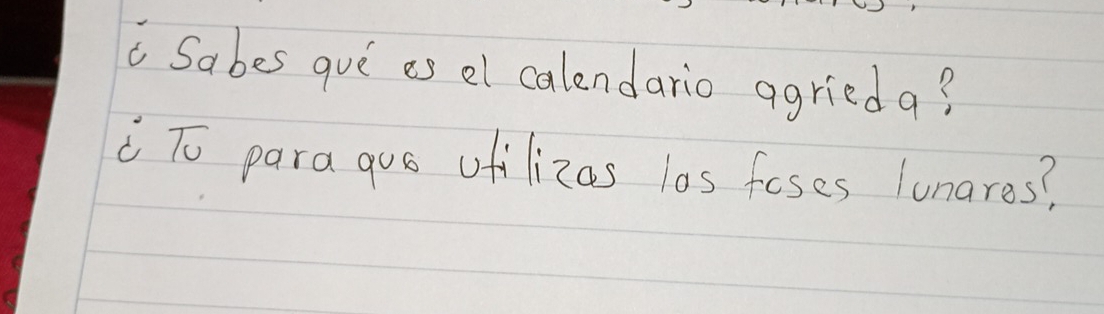 ¿Sabes qué es el calendario agrieda?
¿Tu para que utilizas las fases lunares?